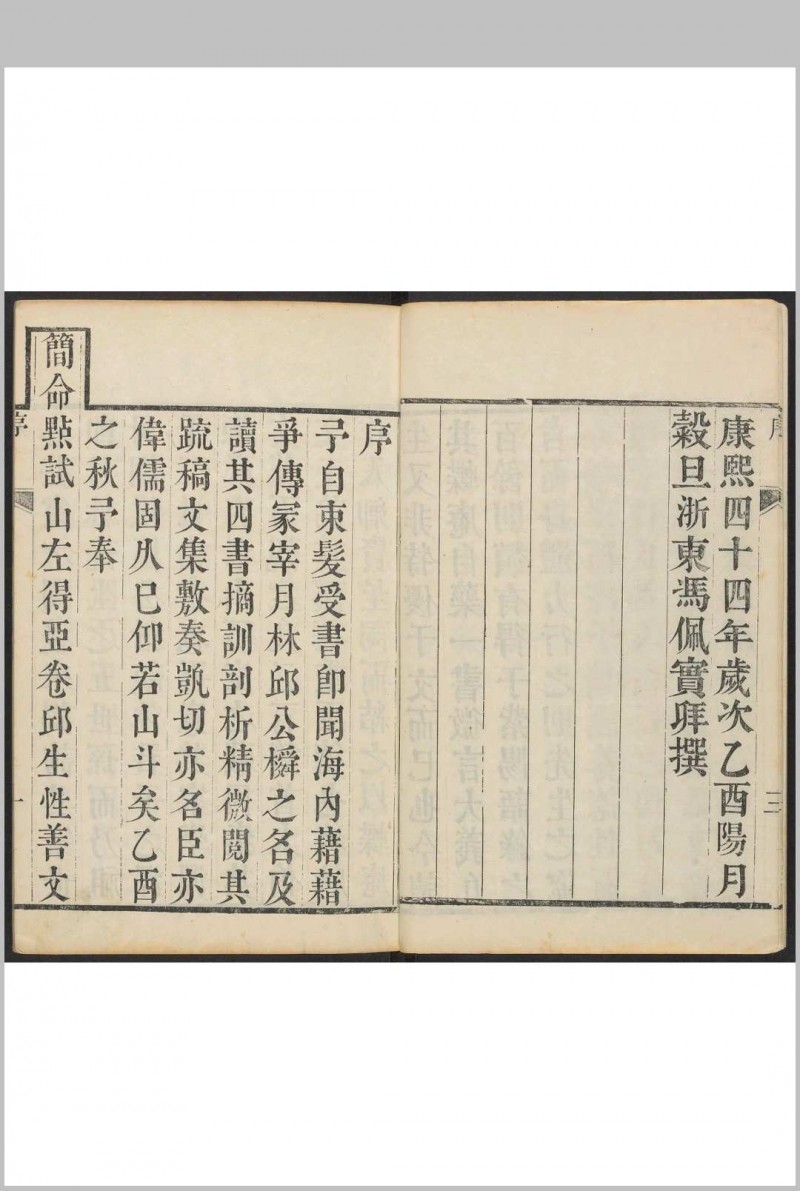 康熙四十四年歲次乙酉陽月
穀旦浙東馮佩實拜撰
三
序
予自束髮受書卽聞海內藉藉
爭傳冢宰月林邱公橓之名及
讀其四書摘訓剖析精微閱其
疏稿文集敷奏凱切亦名臣亦
偉儒固久已仰若山斗矣乙酉
之秋予奉
簡命㸃試山左得亞卷邱生性善文
序
一